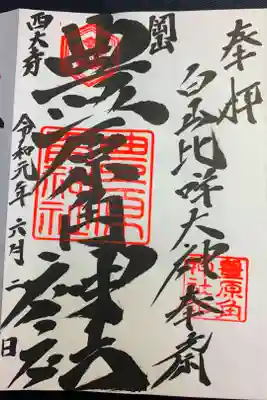 奉拝
白玉比咩大神奉斎
岡山
豊原角神社
西大寺
令和元年 六月二日
豊原角神社
豊原角神社